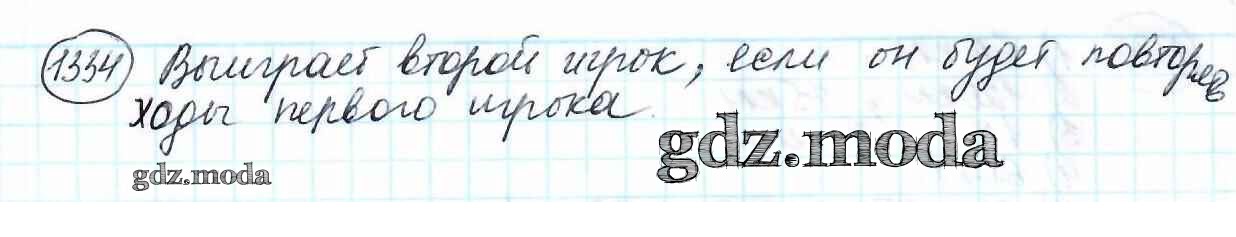 1334 Выиграет второй игрок, если он будет повторять
ходы первого игрока.
gdz.moda
gdz.moda